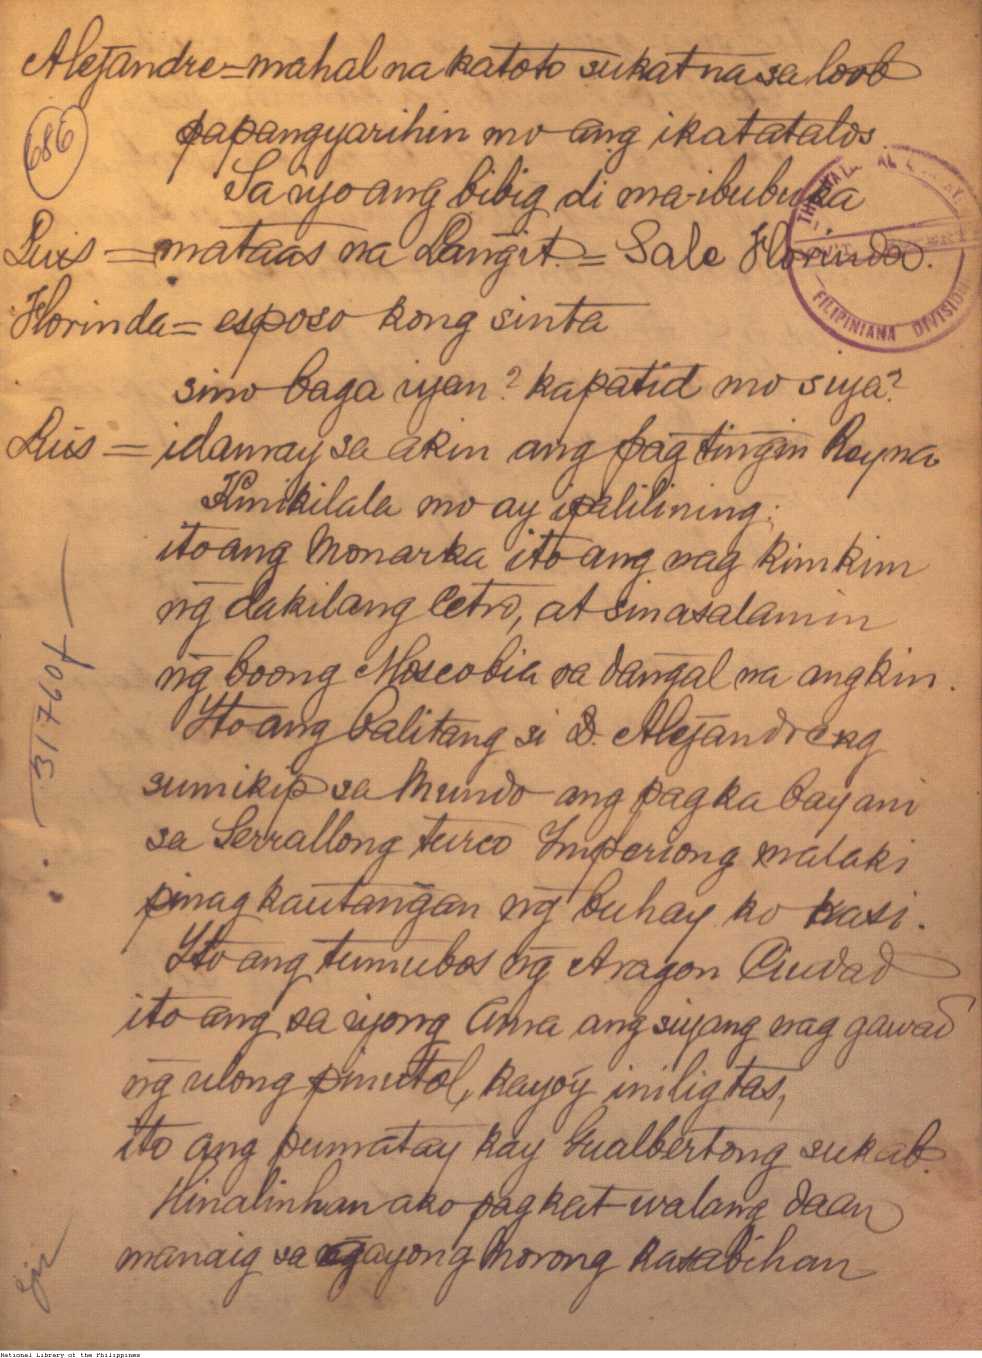 Alejandre = mahal na katoto sukat na sa loob
686
papangyarihin mo ang ikatatalos
Sa iyo ang bibig di ma-ibubuka
Luis = mataas na Langit. = Sale Florinda.
FILIPINIANA DIVISION
Florinda = esposo kong sinta
sino baga iyan? kapatid mo siya?
Luis = idaway sa akin ang pagtingin Reyna
Kinikilala mo ay ipalilining;
ito ang Monarka ito ang nag kimkim
ng̃ dakilang Cetro, at sinasalamin
ng̃ boong Moscobia sa dang̃al na angkin.
Ito ang balitang si D. Alejandreng
sumikip sa Mundo ang pagka bayani
sa Serrallong turco Imperiong malaki
pinagkautang̃an ng̃ buhay ko kasi.
Ito ang tumubos ng̃ Aragon Ciudad
ito ang sa iyong Ama ang siyang nag gawad
ng̃ ulong pinutol, kayo'y iniligtas,
ito ang pumatay kay Gualbertong sukab.
Hinalinhan ako pagkat walang daan
manaig sa gayong Morong kasabihan
31760f
National Library of the Philippines